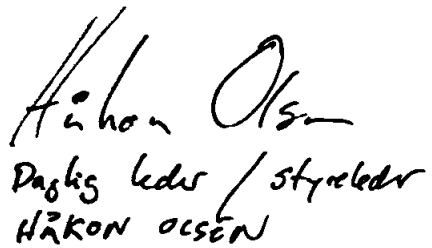 Håkon Olsen
Daglig leder / styreleder
HÅKON OLSEN